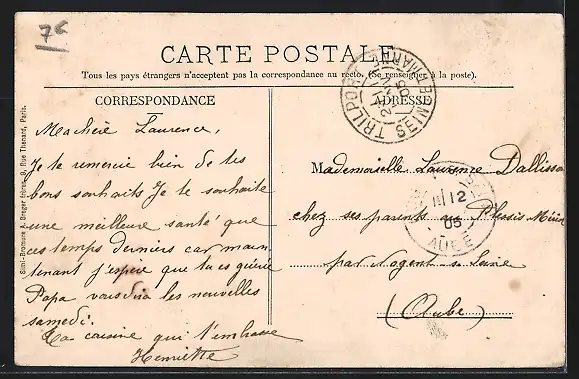 7c
CARTE POSTALE
Tous les pays étrangers n'acceptent pas la correspondance au recto. (Se renseigner à la poste).
CORRESPONDANCE
Ma chère Laurence,
Je te remercie bien de tes
bons souhaits Je te souhaite
une meilleure santé que
ces temps derniers car main
tenant j'espère que tu es guérie
Papa vous dira les nouvelles
samedi.
Ta cousine qui t'embrasse
Henriette
ADRESSE
Mademoiselle Laurence Dallisson
chez ses parents au Plessis Mériot
par Nogent s. Seine
(Aube)
TRILPORT
05
SEINE ET MARNE
12
05
AUBE
Simi-Bromure A. Breger frères, 9, Rue Thénard, Paris.